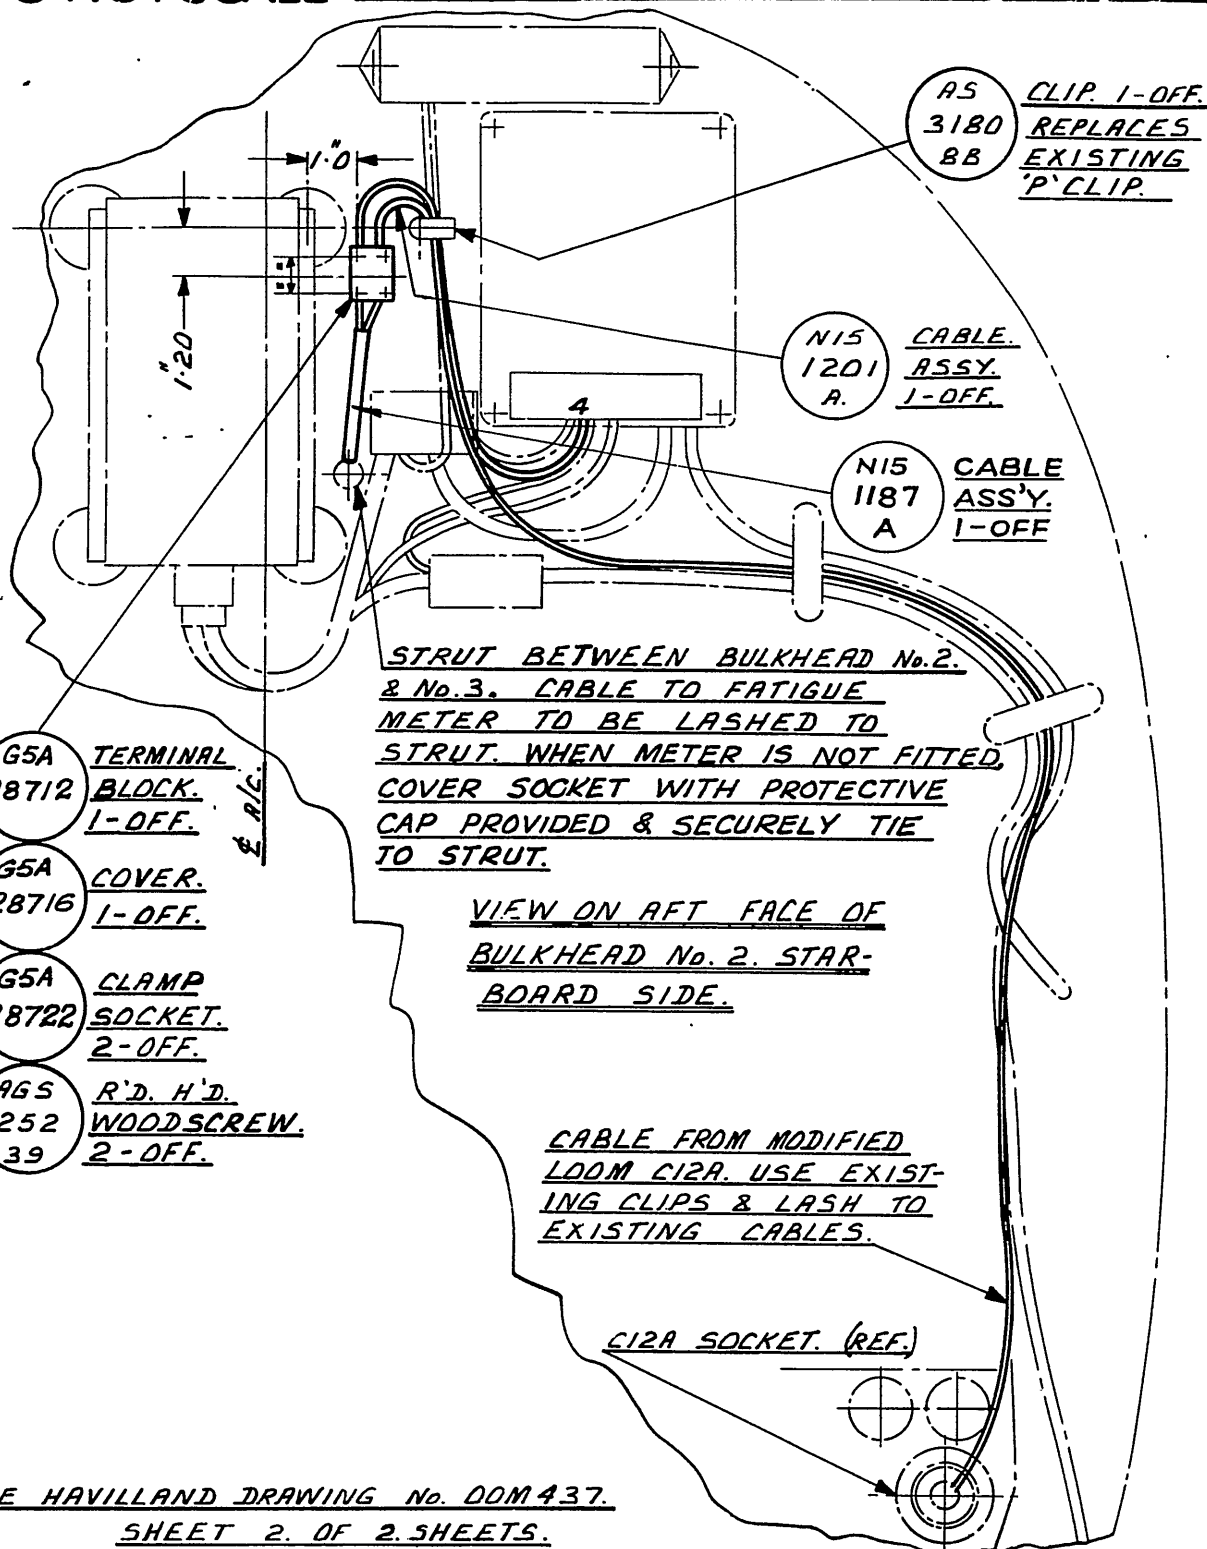 AS
3180
8B
CLIP. 1-OFF.
REPLACES
EXISTING
'P' CLIP.
1.0"
1.20"
" "
N15
1201
A.
CABLE.
ASSY.
1-OFF.
4
N15
1187
A
CABLE
ASS'Y.
1-OFF
STRUT BETWEEN BULKHEAD No.2.
& No.3. CABLE TO FATIGUE
METER TO BE LASHED TO
STRUT. WHEN METER IS NOT FITTED,
COVER SOCKET WITH PROTECTIVE
CAP PROVIDED & SECURELY TIE
TO STRUT.
℄ A/C.
G5A
8712
TERMINAL
BLOCK.
1-OFF.
G5A
28716
COVER.
1-OFF.
G5A
8722
CLAMP
SOCKET.
2-OFF.
AGS
252
39
R'D. H'D.
WOODSCREW.
2-OFF.
VIEW ON AFT FACE OF
BULKHEAD No. 2. STAR-
BOARD SIDE.
CABLE FROM MODIFIED
LOOM C12A. USE EXIST-
ING CLIPS & LASH TO
EXISTING CABLES.
C12A SOCKET. (REF.)
E HAVILLAND DRAWING No. OOM437.
SHEET 2. OF 2. SHEETS.